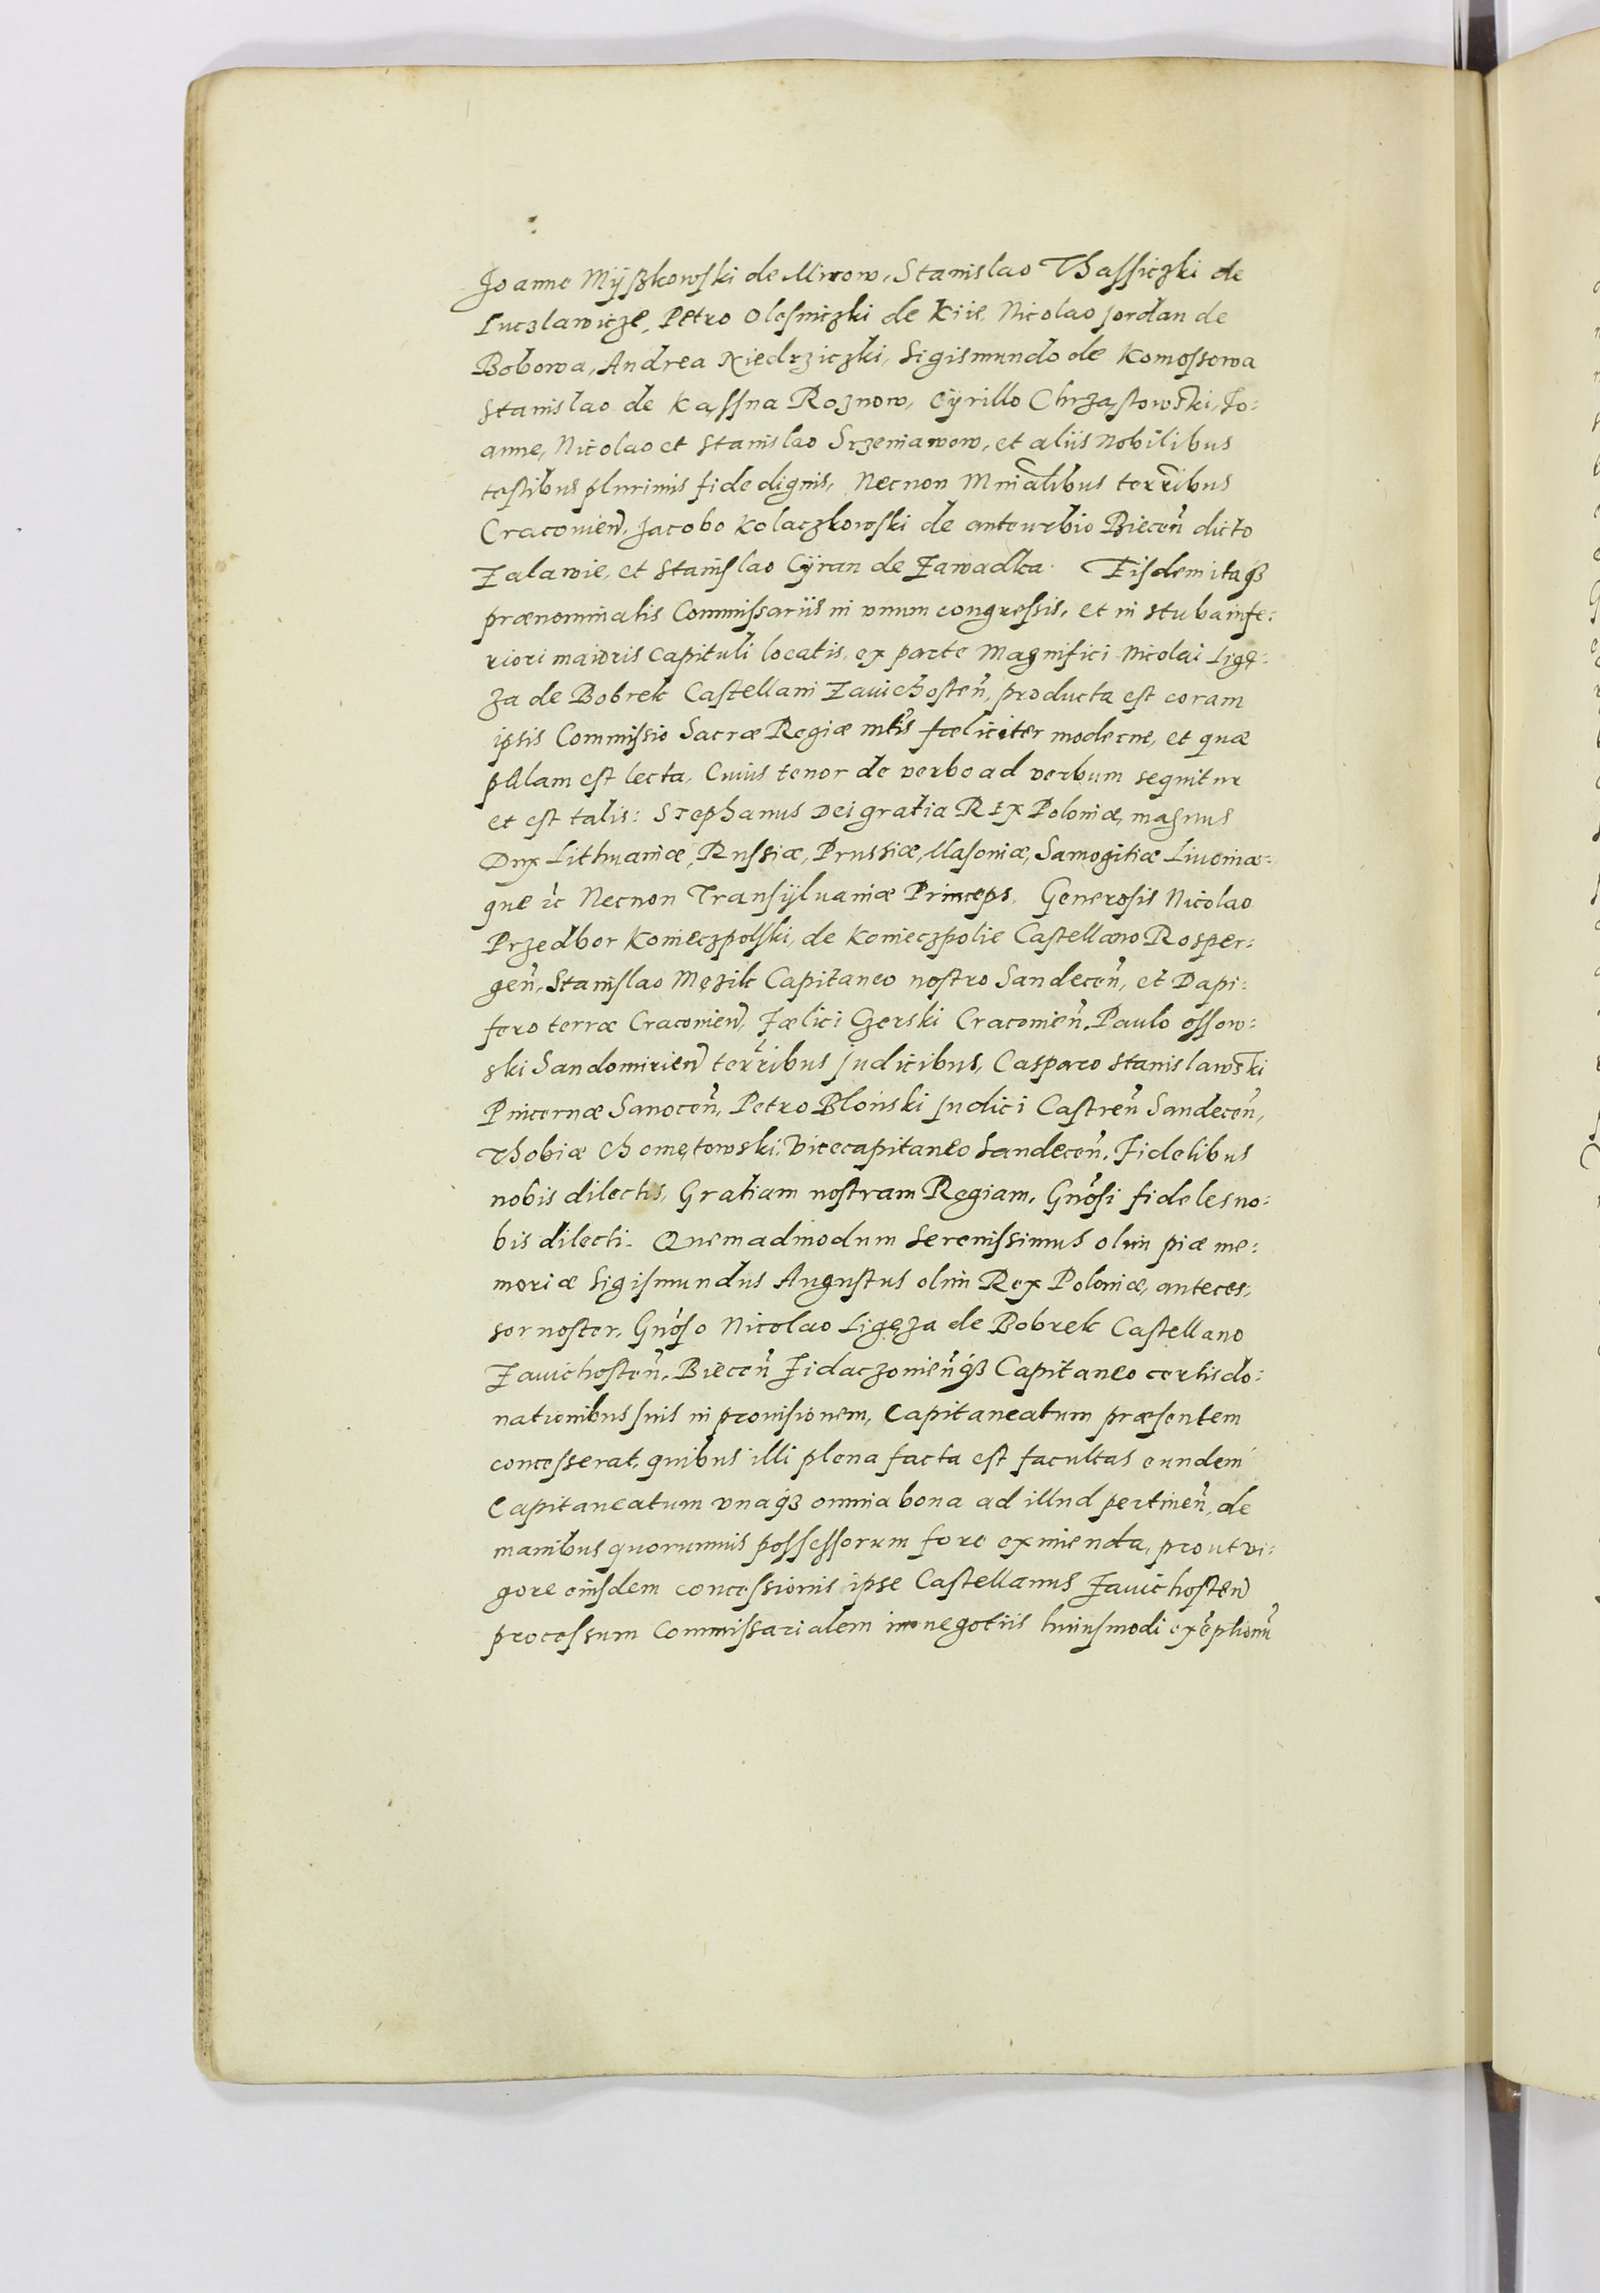 Joanne Mÿszkowski de Mirow, Stanislao Thassiczki de
Luczlawicze, Petro Olesniczki de Kiie, Nicolao Jordan de
Bobowa, Andrea Niedrziczki, Sigismundo de Komossowa
Stanislao de Kąssna Roznow, Cÿrillo Chrząstowski, Jo:
anne, Nicolao et Stanislao Srzeniawow, et aliis nobilibus
testibus plurimis fide dignis, Necnon Mnialibus terribus
Craconien̄, Jacobo Kolaczkowski de anteurbio Biecen̄ dicto
Zalawie, et Stanislao Cÿran de Zawadka. Eisdem itaqȝ
prænominatis Commissariis in vnum congressis, et in stuba infe:
riori maioris capituli locatis, ex parte Magnifici Nicolai Ligę:
za de Bobrek Castellani Zauichosten̄, producta est coram
ipsis Commissio Sacræ Regiæ mtis fœliciter moderne, et quæ
palam est lecta, Cuius tenor de verbo ad verbum sequitur
et est talis: Stephanus Dei gratia Rex Poloniæ, magnus
Dux Lithuaniæ, Russiæ, Prussiæ, Masoniæ, Samogitiæ Livoniæ:
que ꝛc Necnon Transÿluaniæ Princeps. Generosis Nicolao
Przedbor Konieczpolski, de Konieczpolie Castellano Rosper:
gen̄, Stanislao Męzik Capitaneo nostro Sandecen̄, et Dapi:
fero terræ Craconien̄, Fœlici Czerski Craconien̄, Paulo Ossow:
ski Sandomirien̄ terribus Judicibus, Casparo Stanislawski
Pincernæ Sanocen̄, Petro Blonski Judici Castren̄ Sandecen̄,
Thobiæ Chomętowski Vicecapitaneo Sandecen̄. Fidelibus
nobis dilectis, Gratiam nostram Regiam, Gnosi fideles no:
bis dilecti. Quemadmodum Serenissimus olim piæ me:
moriæ Sigismundus Augustus olim Rex Poloniæ, anteces,
sor noster, Gnoso Nicolao Ligęza de Bobrek Castellano
Zauichosten̄, Biecen̄ Zidaczonien̄qȝ Capitaneo certis do:
nationibus suis in prouisionem, Capitaneatum præsentem
concesserat, quibus illi plena facta est facultas eundem
Capitaneatum vnaqȝ omnia bona ad illud pertinen̄, de
manibus quorumuis possessorum fore eximenda, prout vi:
gore eiusdem concessionis ipse Castellanus Zauichosten̄
processum Commissarialem in negotiis huiusmodi exēptionū